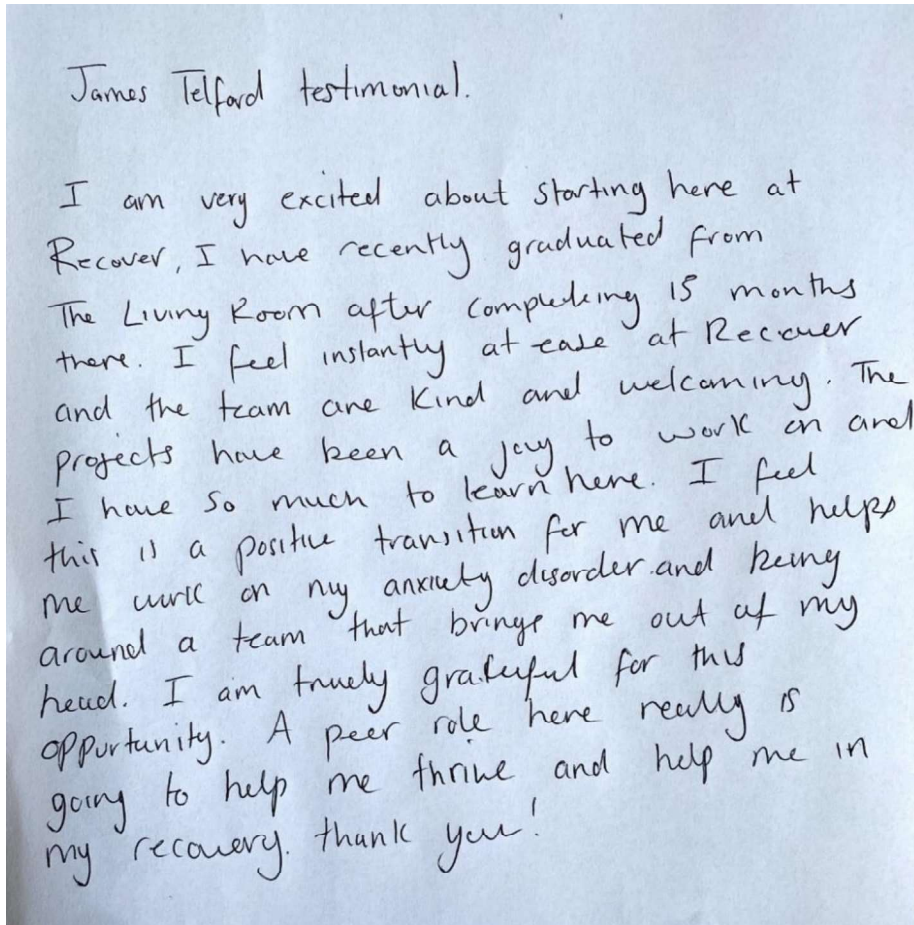 James Telford testimonial.
I am very excited about starting here at
Recover, I have recently graduated from
The Living Room after completeing 15 months
there. I feel instantly at ease at Recover
and the team are kind and welcoming. The
projects have been a joy to work on and
I have so much to learn here. I feel
this is a positive transition for me and helps
me work on my anxiety disorder and being
around a team that brings me out of my
head. I am truely grateful for this
oppurtunity. A peer role here really is
going to help me thrive and help me in
my recovery. thank you!